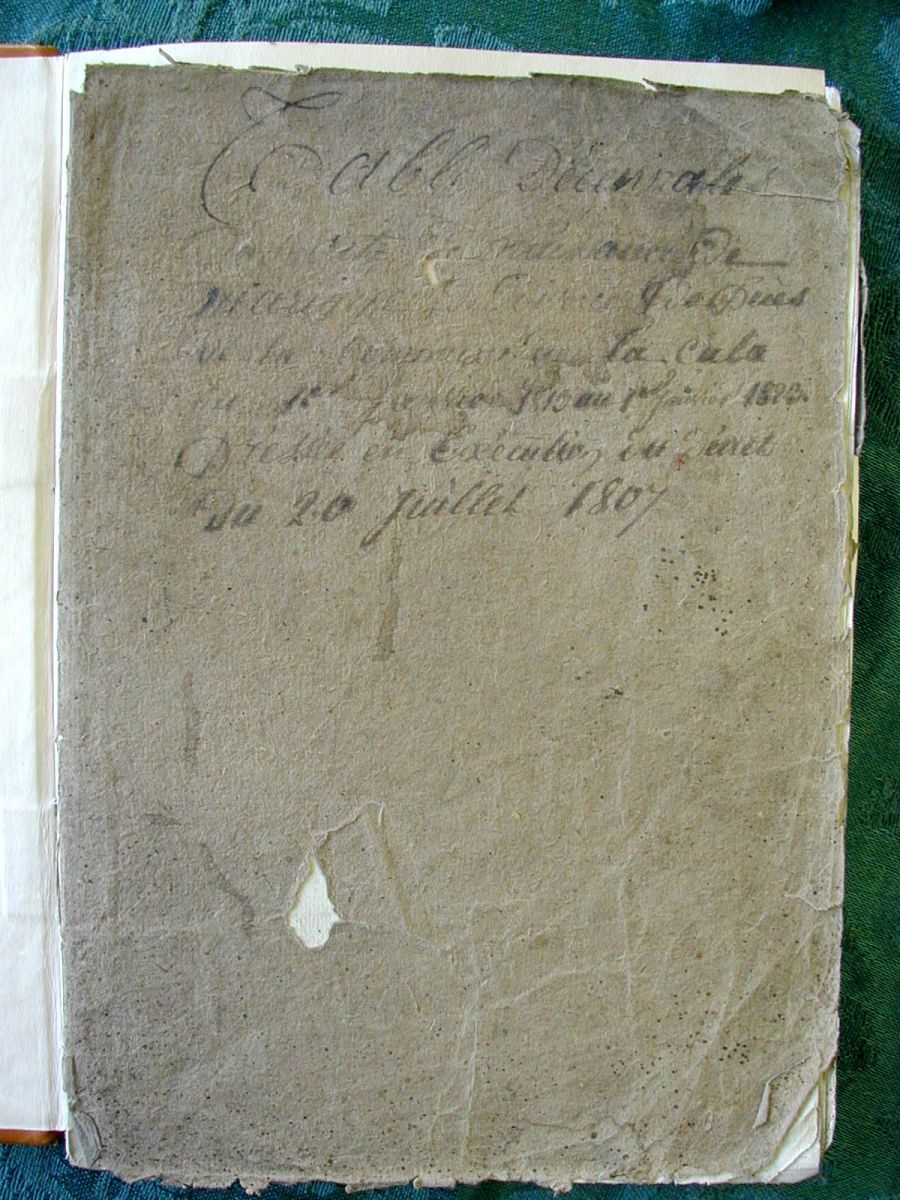 Table Décennale
de naissance De
mariage Deces
de la commune de la cula
du 1er janvier 1813 au 1er janvier 1823
Dressé en Exécution du Décret
Du 20 Juillet 1807